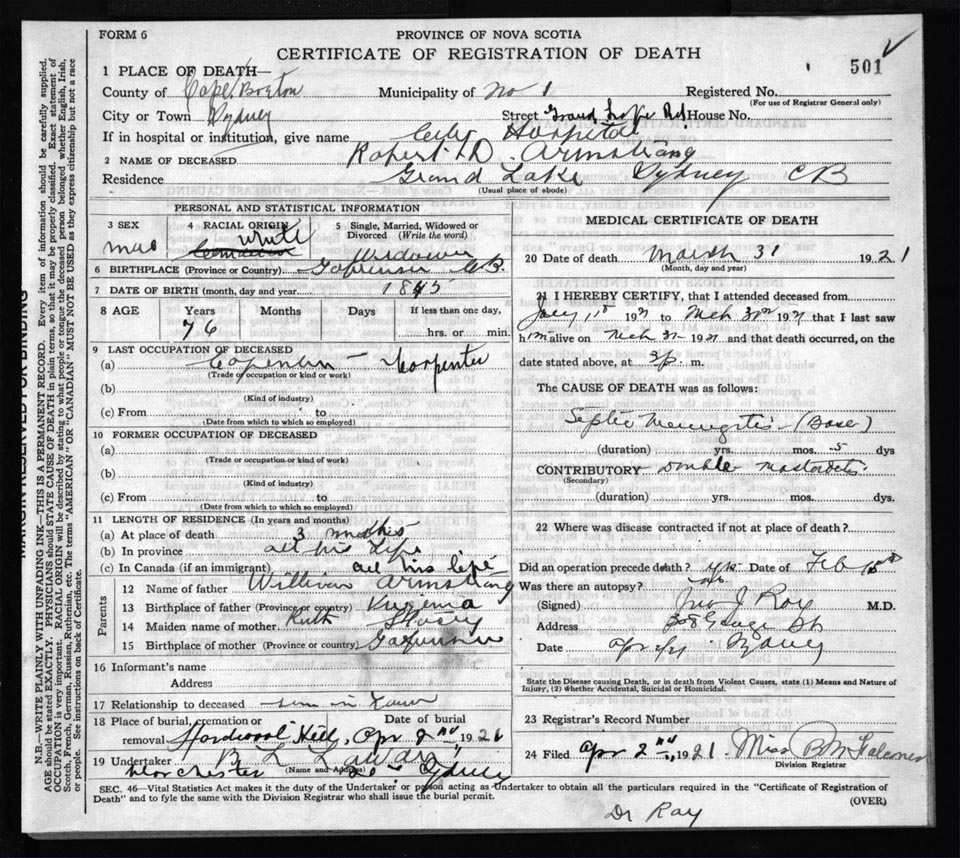 FORM 6
PROVINCE OF NOVA SCOTIA
CERTIFICATE OF REGISTRATION OF DEATH
501
1 PLACE OF DEATH—
County of Cape Breton Municipality of No 1 Registered No.
(For use of Registrar General only)
City or Town Sydney Street Grand Lake Rd House No.
If in hospital or institution, give name City Hospital
2 NAME OF DECEASED Robert D. Armstrong
Residence Grand Lake Sydney CB
(Usual place of abode)
PERSONAL AND STATISTICAL INFORMATION
3 SEX
4 RACIAL ORIGIN
5 Single, Married, Widowed or Divorced (Write the word)
male white Widower
6 BIRTHPLACE (Province or Country) C.B.
7 DATE OF BIRTH (month, day and year) 1845
8 AGE Years Months Days If less than one day,
76 hrs. or min.
9 LAST OCCUPATION OF DECEASED
(a) Carpenter
(Trade or occupation or kind of work)
(b)
(Kind of industry)
(c) From to
(Date from which to which so employed)
10 FORMER OCCUPATION OF DECEASED
(a)
(Trade or occupation or kind of work)
(b)
(Kind of industry)
(c) From to
(Date from which to which so employed)
11 LENGTH OF RESIDENCE (In years and months)
(a) At place of death 3 months
(b) In province all his life
(c) In Canada (if an immigrant) all his life
Parents
12 Name of father William Armstrong
13 Birthplace of father (Province or country) Virginia
14 Maiden name of mother Ruth
15 Birthplace of mother (Province or country)
16 Informant's name
Address
17 Relationship to deceased son in Law
18 Place of burial, cremation or removal Hardwood Hill, Date of burial Apr 2nd 1921
19 Undertaker
(Name and Address)
Dorchester Sydney
MEDICAL CERTIFICATE OF DEATH
20 Date of death March 31 1921
(Month, day and year)
21 I HEREBY CERTIFY, that I attended deceased from
1921 to Mch 1921 that I last saw
him alive on Mch 1921 and that death occurred, on the
date stated above, at p. m.
The CAUSE OF DEATH was as follows:
Septic Meningitis
(duration) yrs. mos. 5 dys
CONTRIBUTORY double mastoiditis
(Secondary)
(duration) yrs. mos. dys.
22 Where was disease contracted if not at place of death?
Did an operation precede death? yes Date of Feb 15
Was there an autopsy? no
(Signed) J Roy M.D.
Address George St
Date Apr 2/21 Sydney
State the Disease causing Death, or in death from Violent Causes, state (1) Means and Nature of Injury, (2) whether Accidental, Suicidal or Homicidal.
23 Registrar's Record Number
24 Filed Apr 2nd, 1921 Miss
Division Registrar
SEC. 46—Vital Statistics Act makes it the duty of the Undertaker or person acting as Undertaker to obtain all the particulars required in the "Certificate of Registration of
Death" and to fyle the same with the Division Registrar who shall issue the burial permit.
(OVER)
Dr Roy
MARGIN RESERVED FOR BINDING
N.B.—WRITE PLAINLY WITH UNFADING INK—THIS IS A PERMANENT RECORD. Every item of information should be carefully supplied.
AGE should be stated EXACTLY. PHYSICIANS should STATE CAUSE OF DEATH in plain terms, so that it may be properly classified. Exact statement of
OCCUPATION is very important. RACIAL ORIGIN will be described by stating to what people or tongue the deceased person belonged whether English, Irish,
Scotch, French, German, Russian, Ruthenian, etc. The terms "AMERICAN" OR "CANADIAN" MUST NOT BE USED as they express citizenship but not a race
or people. See instructions on back of Certificate.